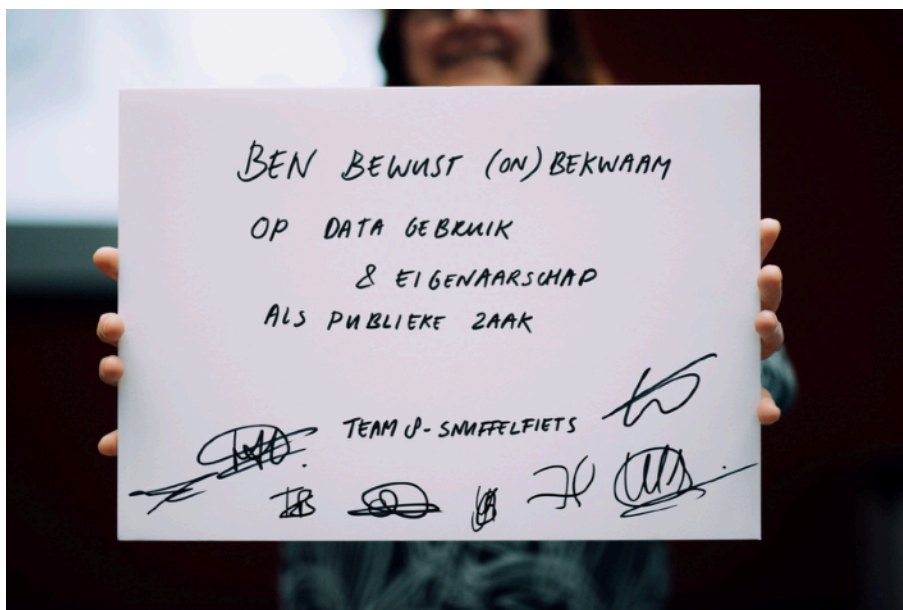 BEN BEWUST (ON) BEKWAAM
OP DATA GEBRUIK
& EIGENAARSCHAP
ALS PUBLIEKE ZAAK
TEAM - SNUFFELFIETS